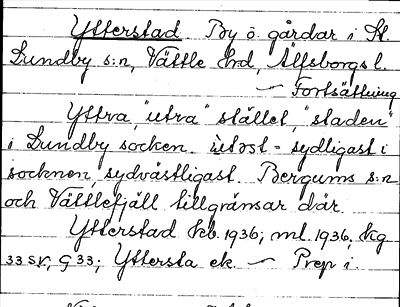 Ytterstad. By ö. gårdar i St.
Lundby s:n, Vättle hrd, Älfsborgs l.
— Fortsättning
Yttra, "utra" stället, "staden"
i Lundby socken. utost = sydligast i
socknen, sydvästligast. Bergums s:n
och Vättlefjäll tillgränsar där.
Ytterstad kb. 1936, ml. 1936, kg
33 SV, G 33; Yttersta ek. — Prep i.